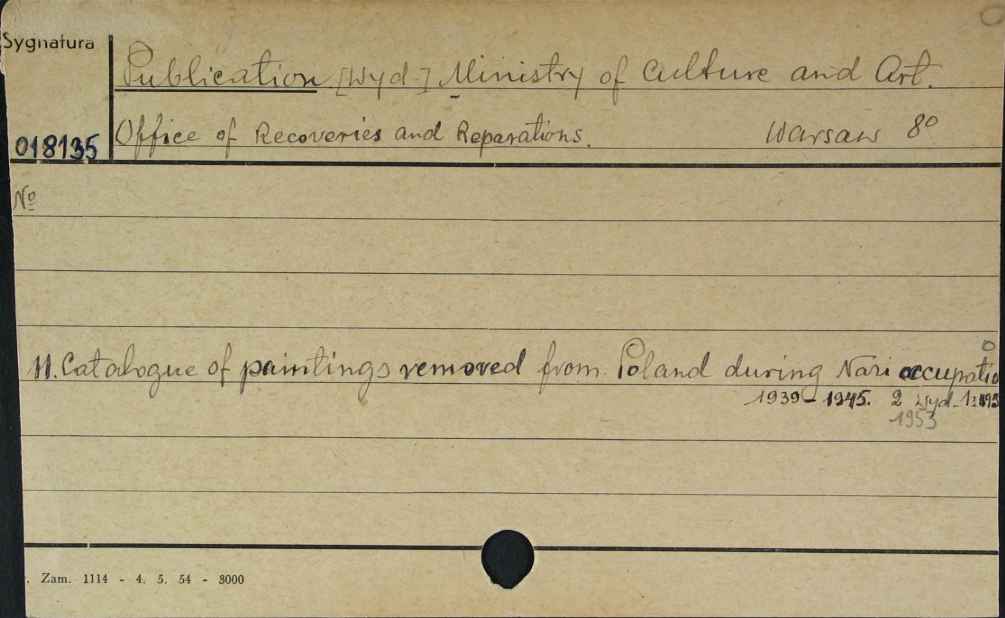 Sygnatura
Publication [Wyd.] Ministry of Culture and Art.
018135 Office of Recoveries and Reparations. Warsaw 8º
Nº
11. Catalogue of paintings removed from Poland during Nazi occupatio
1939-1945. 2 Wyd.
1953
Zam. 1114 - 4. 5. 54 - 3000